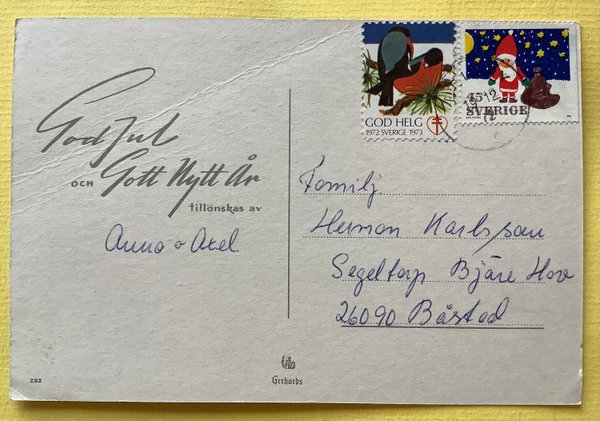 God Jul
och Gott Nytt År
tillönskas av
Anna o Axel
282
GOD HELG
1972 SVERIGE 1973
45
SVERIGE
12
Familj
Herman Karlsson
Segeltorp Bjäre Hov
26090 Båstad
Gerhards